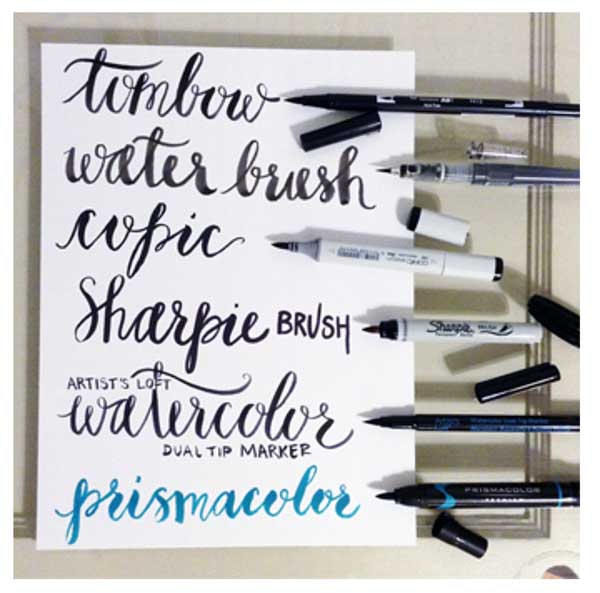 tombow
water brush
copic
COPIC
Sharpie BRUSH
Sharpie BRUSH
ARTIST'S LOFT
watercolor
DUAL TIP MARKER
prismacolor
PRISMACOLOR